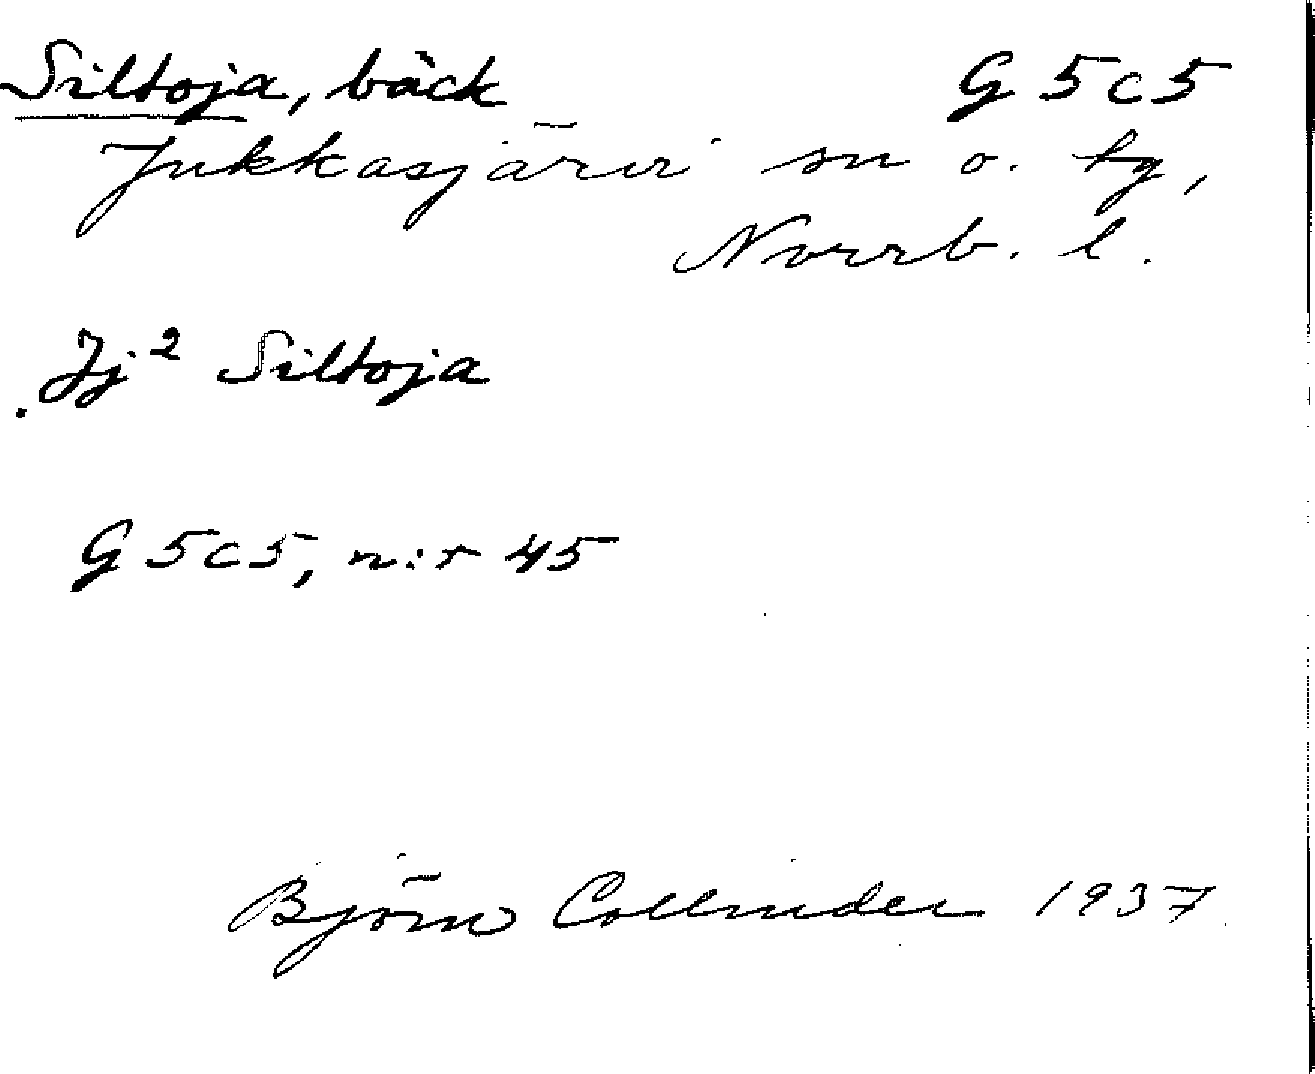 Siltoja, bäck G 5 c 5
Jukkasjärvi sn o. tg,
Norrb. l.
Jj² Siltoja
G 5 c 5, n:r 45
Björn Collinder 1937